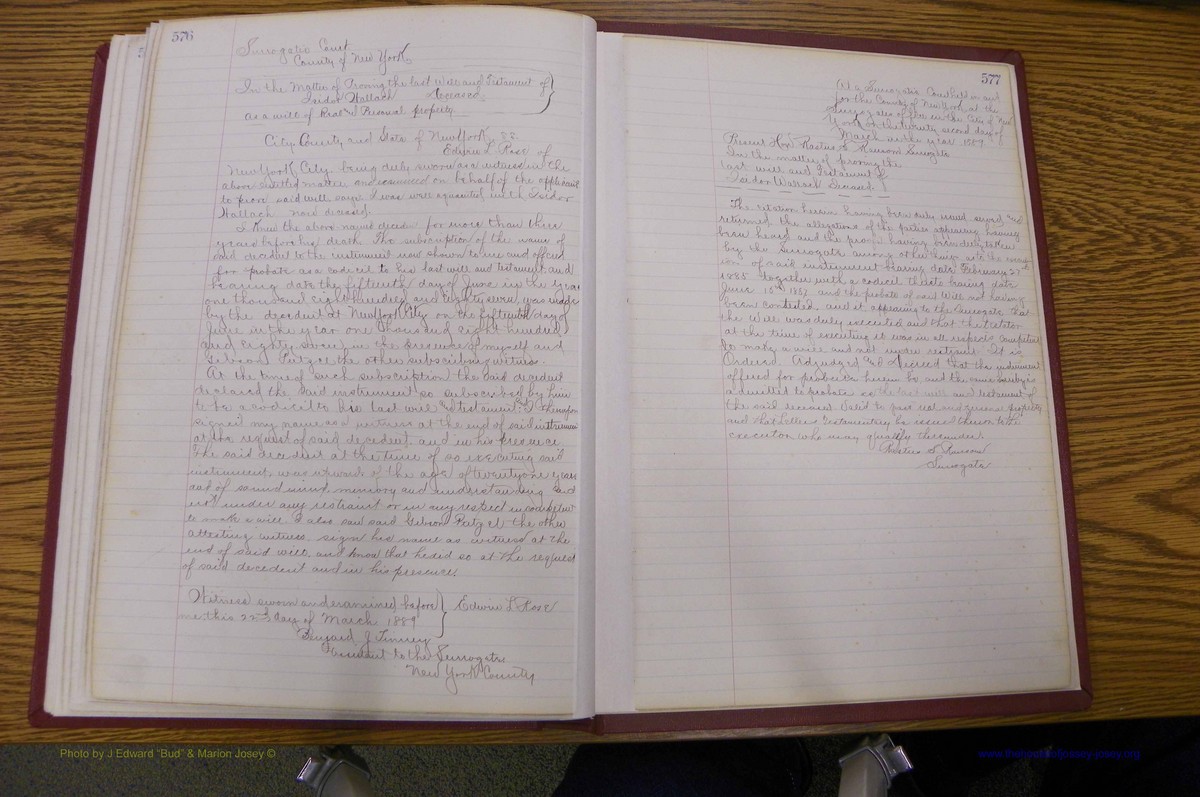 576
Surrogates Court
County of New York,
In the Matter of Proving the last Will and Testament of
Isidor Wallach Deceased,
as a will of Real & Personal property.
City County and State of New York, SS.
Edwin L Rose of
New York City being duly sworn as a witness in the
above entitled matter and examined on behalf of the applicant
to prove said will says I was well aquainted with Isidor
Wallach now deceased.
I knew the above named decedent for more than three
years before his death. The subscription of the name of
said decedent to the instrument now shown to me and offered
for probate as a codecil to his last will and testament and
bearing date the fifteenth day of June in the year
one thousand eight hundred and eighty seven was made
by the decedent at New York City on the fifteenth day of
June in the year one thousand eight hundred
and eighty seven in the presence of myself and
the other subscribing witness.
At the time of such subscription the said decedent
declared the said instrument so subscribed by him
to be a codecil to his last will and testament, & I thereupon
signed my name as a witness at the end of said instrument
at the request of said decedent, and in his presence.
The said decedent at the time of so executing said
instrument, was upward of the age of twenty one years
and of sound mind, memory and understanding and
not under any restraint or in any respect incompetent
to make a will. I also saw said the other
attesting witness, sign his name as witness at the
end of said will, and know that he did so at the request
of said decedent and in his presence.
Witness sworn and examined before
me this 22nd day of March 1889
Edwin L Rose
J Tinney
Assistant to the Surrogate
New York County
577
At a Surrogates Court held in and
for the County of New York, at the
Surrogates office in the City of New
York on the twenty second day of
March in the year 1889.
Present Hon Rastus S. Ransom Surrogate
In the matter of proving the
last will and Testament of
Isidor Wallach Deceased.
The citation herein having been duly issued served and
returned, the allegations of the parties appearing having
been heard and the proofs having been duly taken
by the Surrogate among other things as to the execut
ion of said instrument bearing date February 27th
1885 together with a codicil thereto bearing date
June 15th 1887 and the probate of said Will not having
been contested, and it appearing to the Surrogate that
the Will was duly executed and that the testator
at the time of executing it was in all respects competent
to make a will and not under restraint. It is
Ordered, Adjudged and Decreed that the instrument
offered for probate herein be, and the same hereby is
admitted to probate as the last will and testament of
the said deceased valid to pass real and personal property
and that Letters Testamentary be issued thereon to the
executors who may qualify thereunder.
Rastus S. Ransom
Surrogate
Photo by J Edward "Bud" & Marion Josey ©